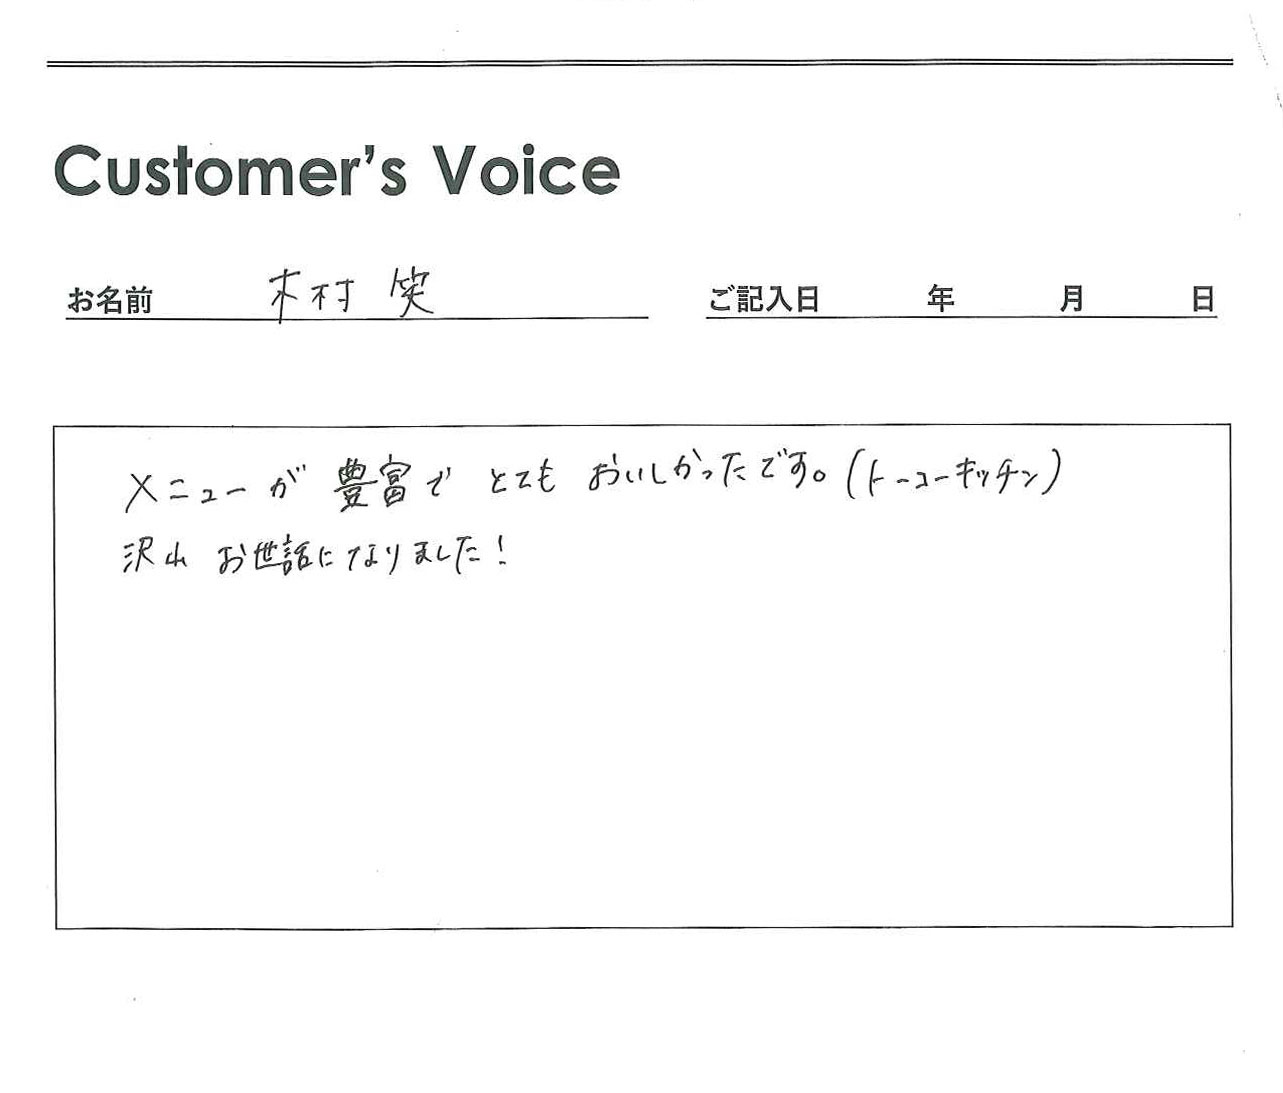 Customer's Voice
お名前 木村 笑
ご記入日 年 月 日
メニューが豊富でとてもおいしかったです。(トーコーキッチン)
沢山お世話になりました!